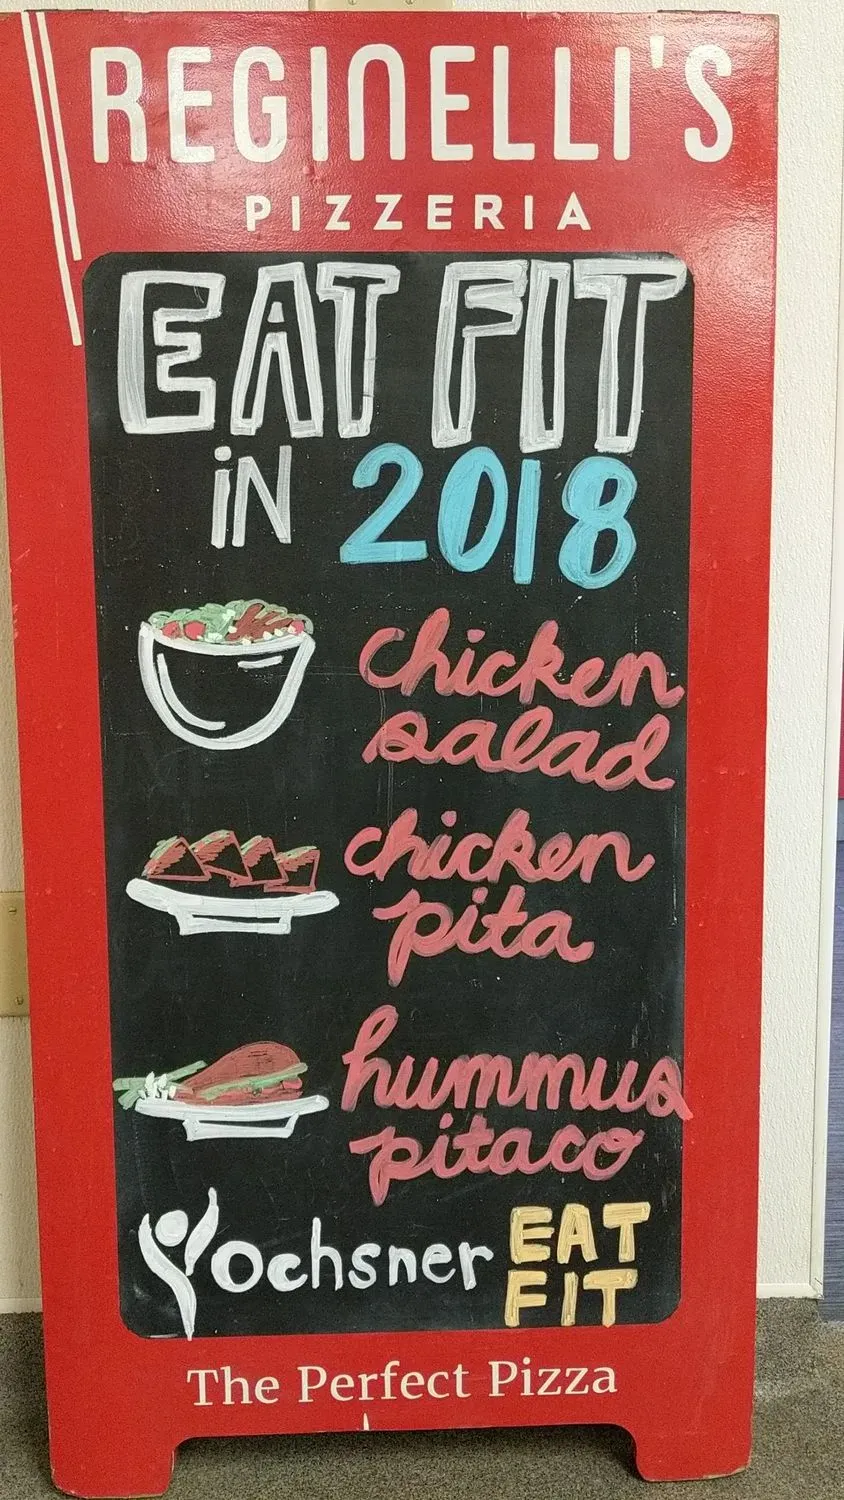 REGINELLI'S
PIZZERIA
EAT FIT
iN 2018
chicken
salad
chicken
pita
hummus
pitaco
Ochsner EAT
FIT
The Perfect Pizza